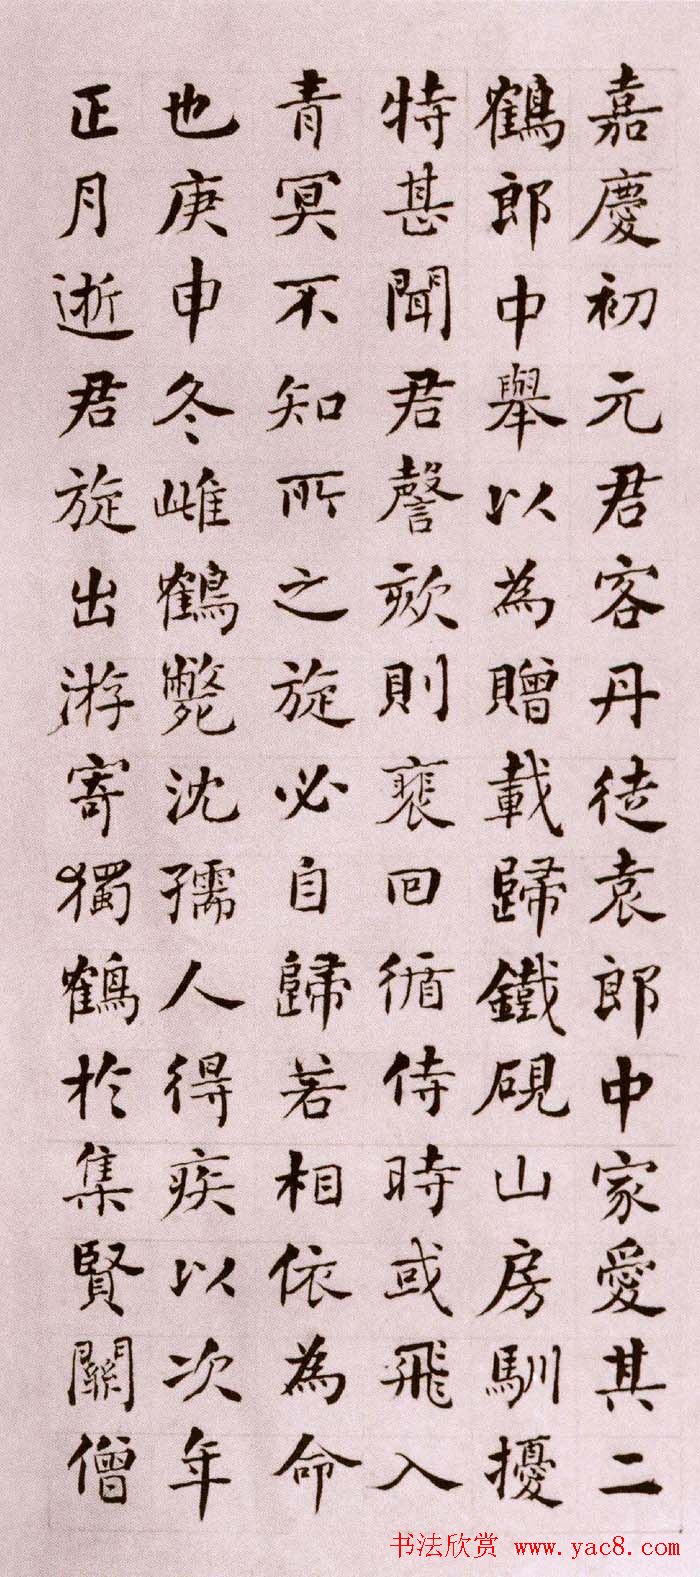 嘉慶初元君客丹徒袁郎中家愛其二
鶴郎中舉以為贈載歸鐵硯山房馴擾
特甚聞君謦欬則裵回循侍時或飛入
青冥不知所之旋必自歸若相依為命
也庚申冬雌鶴斃沈孺人得疾以次年
正月逝君旋出游寄獨鶴於集賢關僧
书法欣赏 www.yac8.com